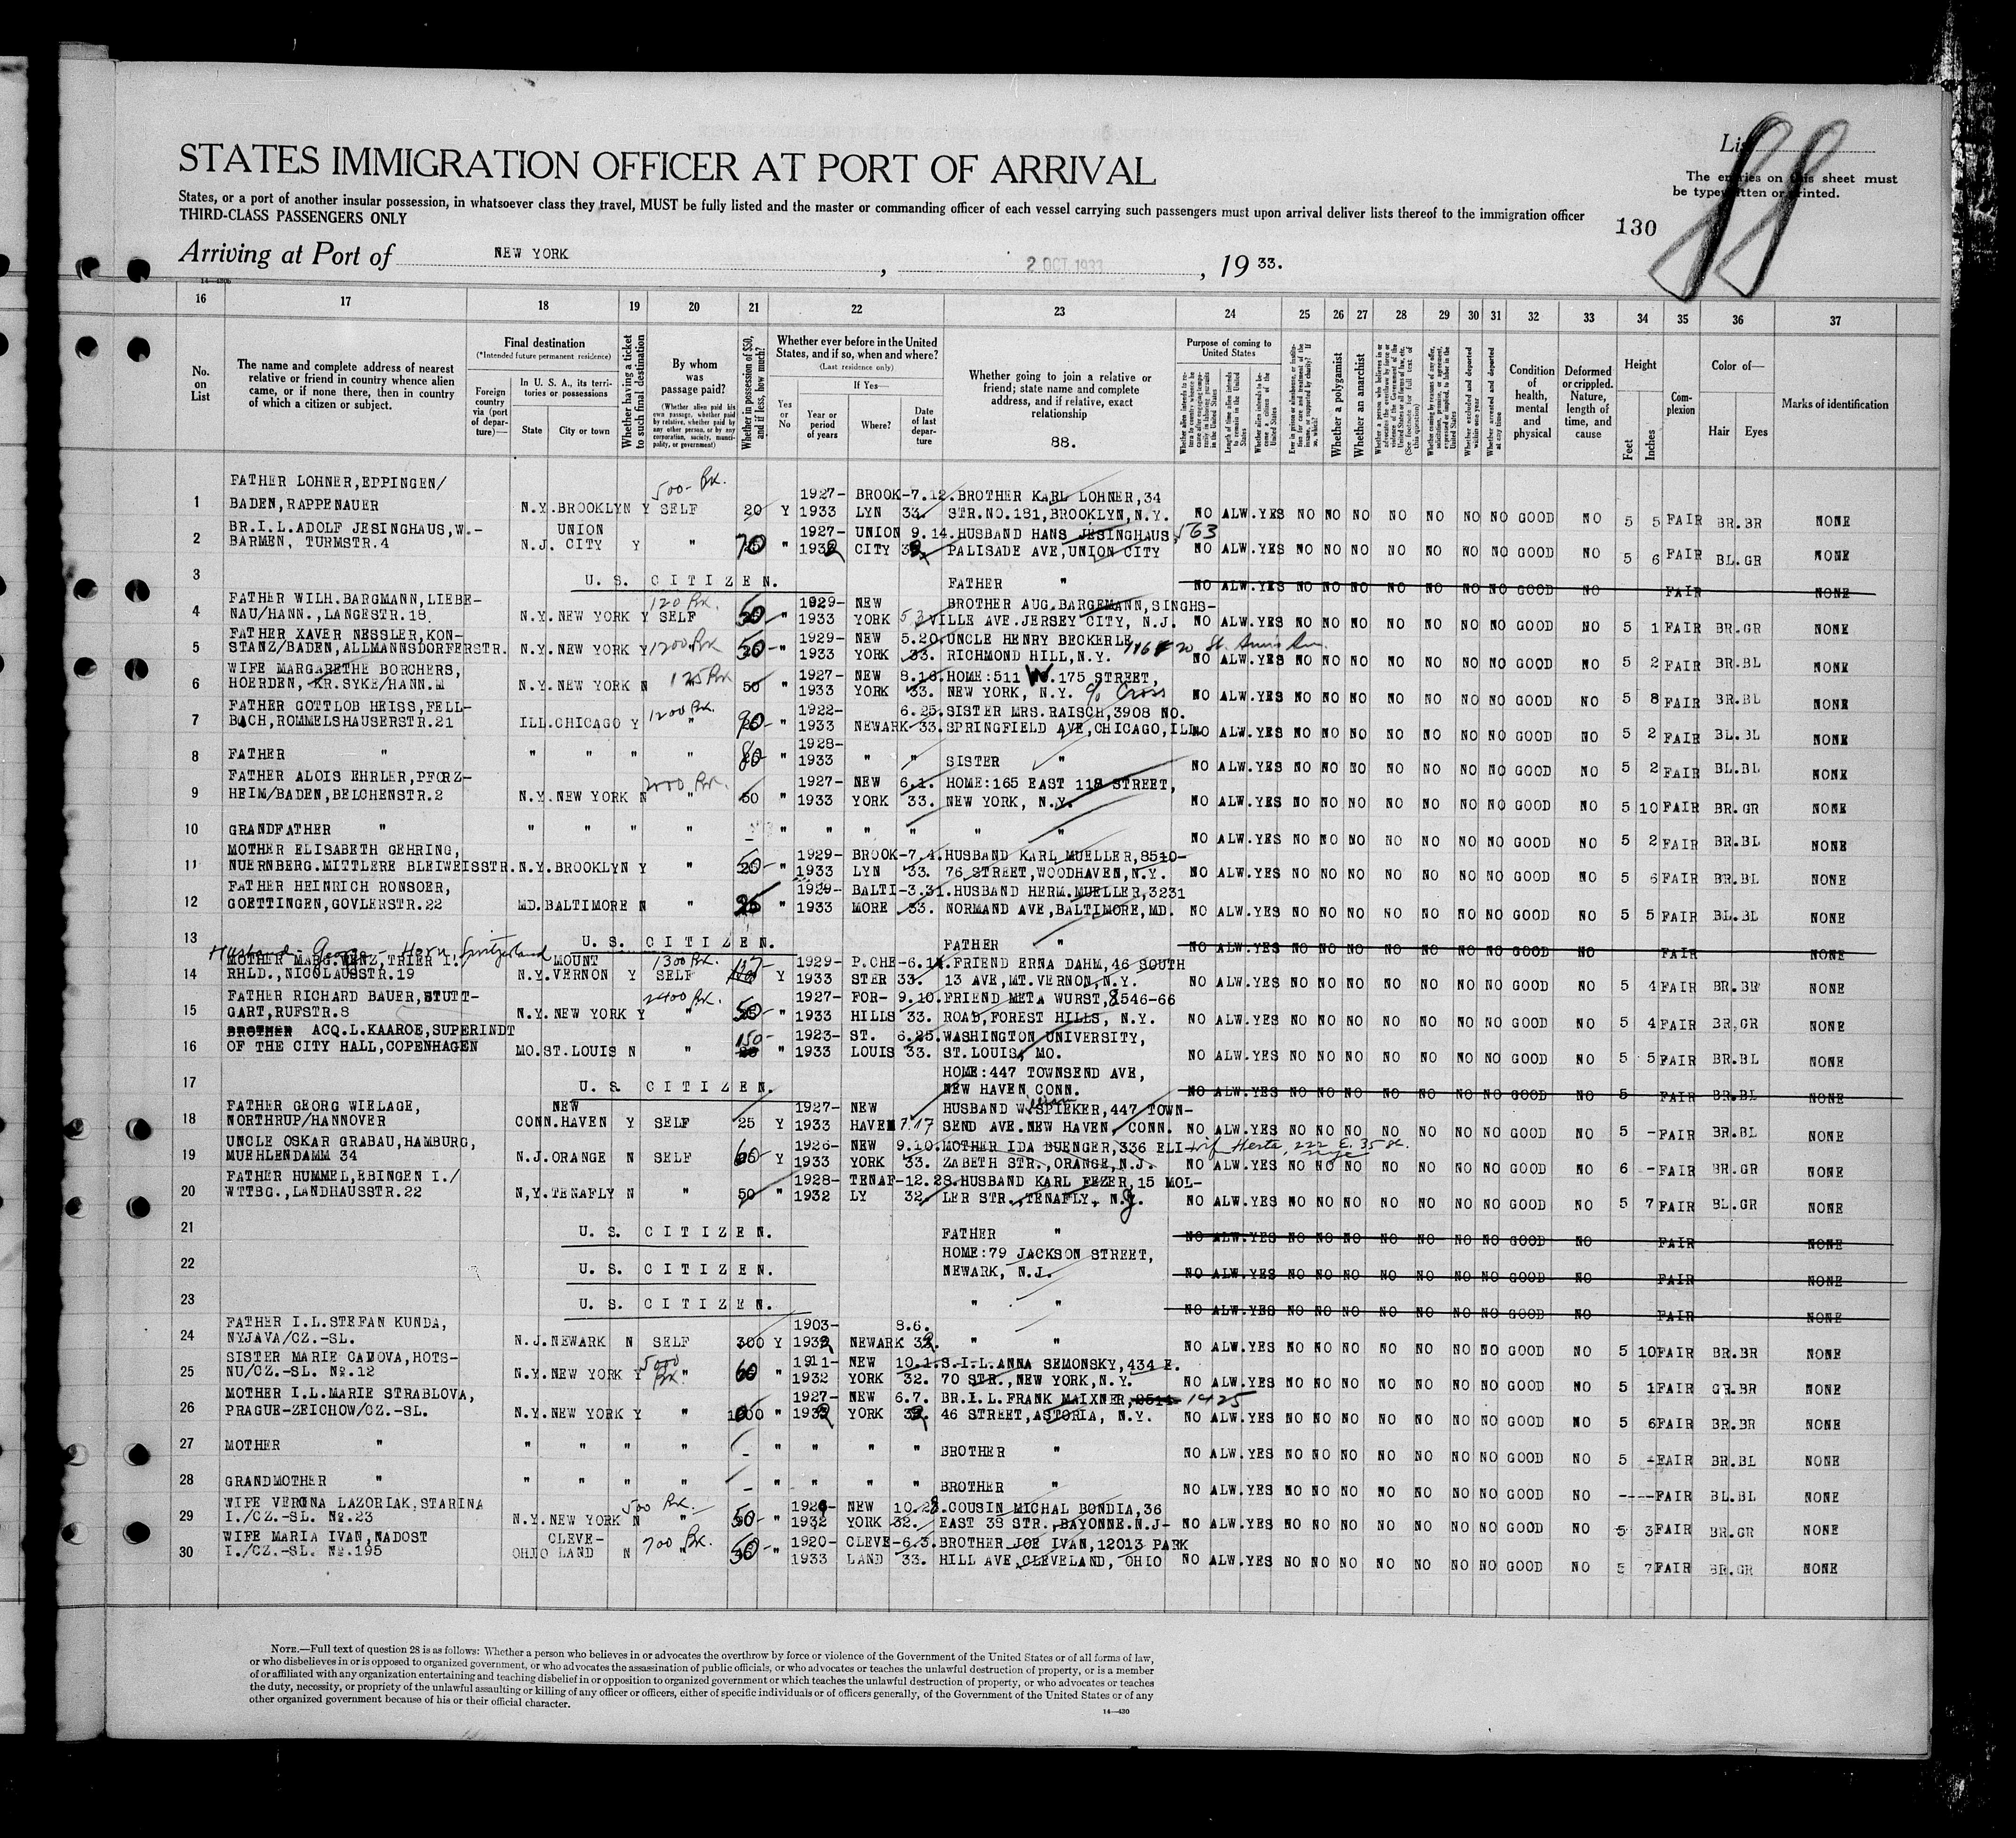 STATES IMMIGRATION OFFICER AT PORT OF ARRIVAL
States, or a port of another insular possession, in whatsoever class they travel, MUST be fully listed and the master or commanding officer of each vessel carrying such passengers must upon arrival deliver lists thereof to the immigration officer
THIRD-CLASS PASSENGERS ONLY
The entries on this sheet must
be typewritten or printed.
130
Arriving at Port of NEW YORK, 2 OCT 1933, 19 33.
16 17 18 19 20 21 22 23 24 25 26 27 28 29 30 31 32 33 34 35 36 37
No. on List
The name and complete address of nearest relative or friend in country whence alien came, or if none there, then in country of which a citizen or subject.
Final destination
(*Intended future permanent residence)
Foreign country via (port of departure)—
In U. S. A., its territories or possessions
State City or town
Whether having a ticket to such final destination
By whom was passage paid?
(Whether alien paid his own passage, whether paid by relative, whether paid by any other person, or by any corporation, society, municipality, or government)
Whether in possession of $50, and if less, how much?
Whether ever before in the United States, and if so, when and where?
(Last residence only)
Yes or No
If Yes—
Year or period of years
Where?
Date of last departure
Whether going to join a relative or friend; state name and complete address, and if relative, exact relationship
88.
Purpose of coming to United States
Whether a polygamist
Whether an anarchist
Condition of health, mental and physical
Deformed or crippled. Nature, length of time, and cause
Height
Feet Inches
Complexion
Color of—
Hair Eyes
Marks of identification
FATHER LOHNER,EPPINGEN/ 500- Rk. 1927- BROOK-7.12.BROTHER KARL LOHNER,34
1 BADEN,RAPPENAUER N.Y.BROOKLYN Y SELF 20 Y 1933 LYN 33. STR.NO.181,BROOKLYN,N.Y. NO ALW.YES NO NO NO NO NO NO NO GOOD NO 5 5 FAIR BR.BR NONE
BR.I.L.ADOLF JESINGHAUS,W.- UNION 1927- UNION 9.14.HUSBAND HANS JESINGHAUS, 563
2 BARMEN, TURMSTR.4 N.J. CITY Y " 70 " 1932 CITY 32 PALISADE AVE,UNION CITY NO ALW.YES NO NO NO NO NO NO NO GOOD NO 5 6 FAIR BL.GR NONE
3 U. S. CITIZEN. FATHER " NO ALW.YES NO NO NO NO NO NO NO GOOD NO FAIR NONE
FATHER WILH.BARGMANN,LIEBE- 120 Rk. 1929- NEW BROTHER AUG.BARGEMANN,SINGHS-
4 NAU/HANN.,LANGESTR.18. N.Y.NEW YORK Y SELF 50 " 1933 YORK 5 3 VILLE AVE.JERSEY CITY, N.J. NO ALW.YES NO NO NO NO NO NO NO GOOD NO 5 1 FAIR BR.GR NONE
FATHER XAVER NESSLER,KON- 1929- NEW 5.20.UNCLE HENRY BECKERLE
5 STANZ/BADEN,ALLMANNSDORFERSTR. N.Y.NEW YORK Y 1200 Rk 50 " 1933 YORK 33. RICHMOND HILL,N.Y. NO ALW.YES NO NO NO NO NO NO NO GOOD NO 5 2 FAIR BR.BL NONE
WIFE MARGARETHE BORCHERS, 125 Rk 1927- NEW 8.16.HOME:511 W.175 STREET,
6 HOERDEN, KR.SYKE/HANN.M N.Y.NEW YORK N " 50 " 1933 YORK 33. NEW YORK, N.Y. c/o Cross NO ALW.YES NO NO NO NO NO NO NO GOOD NO 5 8 FAIR BR.BL NONE
FATHER GOTTLOB HEISS,FELL- 1200 Rk. 1922- 6.25.SISTER MRS.RAISCH,3908 NO.
7 BACH,ROMMELSHAUSERSTR.21 ILL.CHICAGO Y " 90 " 1933 NEWARK 33.SPRINGFIELD AVE,CHICAGO,ILL. NO ALW.YES NO NO NO NO NO NO NO GOOD NO 5 2 FAIR BL.BL NONE
1928-
8 FATHER " " " " " 80 " 1933 " " SISTER " NO ALW.YES NO NO NO NO NO NO NO GOOD NO 5 2 FAIR BL.BL NONE
FATHER ALOIS EHRLER,PFORZ- 1927- NEW 6.1. HOME:165 EAST 118 STREET,
9 HEIM/BADEN,BELCHENSTR.2 N.Y.NEW YORK N " 50 " 1933 YORK 33. NEW YORK, N.Y. NO ALW.YES NO NO NO NO NO NO NO GOOD NO 5 10 FAIR BR.GR NONE
10 GRANDFATHER " " " " " - " " " " " " NO ALW.YES NO NO NO NO NO NO NO GOOD NO 5 2 FAIR BR.BL NONE
MOTHER ELISABETH GEHRING, 1929- BROOK-7.4.HUSBAND KARL MUELLER,8510-
11 NUERNBERG.MITTLERE BLEIWEISSTR.N.Y.BROOKLYN Y " 50 " 1933 LYN 33. 76 STREET,WOODHAVEN,N.Y. NO ALW.YES NO NO NO NO NO NO NO GOOD NO 5 6 FAIR BR.BL NONE
FATHER HEINRICH RONSOER, 1929- BALTI-3.31.HUSBAND HERM.MUELLER,3231
12 GOETTINGEN,GOVLERSTR.22 MD.BALTIMORE N " 25 " 1933 MORE 33. NORMAND AVE,BALTIMORE,MD. NO ALW.YES NO NO NO NO NO NO NO GOOD NO 5 5 FAIR BL.BL NONE
13 U. S. CITIZEN. FATHER " NO ALW.YES NO NO NO NO NO NO NO GOOD NO FAIR NONE
Husband - George - Horn Switzerland
MOTHER MARG.WENZ,TRIER I./ MOUNT 1300 Rk. 1929- P.CHE-6.14.FRIEND ERNA DAHM,46 SOUTH
14 RHLD.,NICOLAUSSTR.19 N.Y.VERNON Y SELF Y 1933 STER 33. 13 AVE,MT.VERNON,N.Y. NO ALW.YES NO NO NO NO NO NO NO GOOD NO 5 4 FAIR BR.BR NONE
FATHER RICHARD BAUER,STUTT- 2400 Rk. 1927- FOR- 9.10.FRIEND META WURST,8546-66
15 GART,RUFSTR.8 N.Y.NEW YORK Y " 50 " 1933 HILLS 33. ROAD,FOREST HILLS, N.Y. NO ALW.YES NO NO NO NO NO NO NO GOOD NO 5 4 FAIR BR.GR NONE
BROTHER ACQ.L.KAAROE,SUPERINDT 150- 1923- ST. 6.25.WASHINGTON UNIVERSITY,
16 OF THE CITY HALL,COPENHAGEN MO.ST.LOUIS N " " 1933 LOUIS 33. ST.LOUIS, MO. NO ALW.YES NO NO NO NO NO NO NO GOOD NO 5 5 FAIR BR.BL NONE
HOME:447 TOWNSEND AVE,
17 U. S. CITIZEN. NEW HAVEN,CONN. NO ALW.YES NO NO NO NO NO NO NO GOOD NO 5 FAIR BR.BL NONE
FATHER GEORG WIELAGE, NEW 1927- NEW HUSBAND W.SPIEKER,447 TOWN-
18 NORTHRUP/HANNOVER CONN.HAVEN Y SELF 25 Y 1933 HAVEN 7.17 SEND AVE.NEW HAVEN, CONN. NO ALW.YES NO NO NO NO NO NO NO GOOD NO 5 - FAIR BR.BL NONE
UNCLE OSKAR GRABAU,HAMBURG, 1926- NEW 9.10.MOTHER IDA BUENGER,336 ELI- wife Herta, 222 E. 35 St.
19 MUEHLENDAMM 34 N.J.ORANGE N SELF 60 Y 1933 YORK 33. ZABETH STR.,ORANGE,N.J. NO ALW.YES NO NO NO NO NO NO NO GOOD NO 6 - FAIR BR.GR NONE
FATHER HUMMEL,EBINGEN I./ 1928- TENAF-12.28.HUSBAND KARL FEZER,15 MOL-
20 WTTBG.,LANDHAUSSTR.22 N,Y.TENAFLY N " 50 " 1932 LY 32. LER STR.,TENAFLY, N.J. NO ALW.YES NO NO NO NO NO NO NO GOOD NO 5 7 FAIR BL.GR NONE
21 U. S. CITIZEN. FATHER " NO ALW.YES NO NO NO NO NO NO NO GOOD NO FAIR NONE
HOME:79 JACKSON STREET,
22 U. S. CITIZEN. NEWARK, N.J. NO ALW.YES NO NO NO NO NO NO NO GOOD NO FAIR NONE
23 U. S. CITIZEN. " " NO ALW.YES NO NO NO NO NO NO NO GOOD NO FAIR NONE
FATHER I.L.STEFAN KUNDA, 1903- 8.6.
24 NYJAVA/CZ.-SL. N.J.NEWARK N SELF 300 Y 1932 NEWARK 32. " " NO ALW.YES NO NO NO NO NO NO NO GOOD NO 5 10 FAIR BR.BR NONE
SISTER MARIE CADOVA,HOTS- 5000 1911- NEW 10.1.S.I.L.ANNA SEMONSKY,434 E.
25 NU/CZ.-SL. No.12 N.Y.NEW YORK Y Rk. " 60 " 1932 YORK 32. 70 STR.,NEW YORK,N.Y. NO ALW.YES NO NO NO NO NO NO NO GOOD NO 5 1 FAIR GR.BR NONE
MOTHER I.L.MARIE STRABLOVA, 1927- NEW 6.7. BR.I.L.FRANK MAIXNER, 1425
26 PRAGUE-ZEICHOW/CZ.-SL. N.Y.NEW YORK Y " " 1932 YORK 32. 46 STREET,ASTORIA, N.Y. NO ALW.YES NO NO NO NO NO NO NO GOOD NO 5 6 FAIR BR.BR NONE
27 MOTHER " " " " " - " " " " BROTHER " NO ALW.YES NO NO NO NO NO NO NO GOOD NO 5 - FAIR BR.BL NONE
28 GRANDMOTHER " " " " " - " " " " BROTHER " NO ALW.YES NO NO NO NO NO NO NO GOOD NO ---- FAIR BL.BL NONE
WIFE VERONA LAZORIAK,STARINA 500 Rk. 1926- NEW 10.28.COUSIN MICHAL BONDIA,36
29 I./CZ.-SL. No.23 N.Y.NEW YORK N " 50 " 1932 YORK 32. EAST 38 STR.,BAYONNE.N.J- NO ALW.YES NO NO NO NO NO NO NO GOOD NO 5 3 FAIR BR.GR NONE
WIFE MARIA IVAN,NADOST CLEVE- 700 Rk. 1920- CLEVE-6.3.BROTHER JOE IVAN,12013 PARK
30 I./CZ.-SL. No.195 OHIO LAND N " 50 " 1933 LAND 33. HILL AVE,CLEVELAND, OHIO NO ALW.YES NO NO NO NO NO NO NO GOOD NO 5 7 FAIR BR.GR NONE
NOTE.—Full text of question 28 is as follows: Whether a person who believes in or advocates the overthrow by force or violence of the Government of the United States or of all forms of law,
or who disbelieves in or is opposed to organized government, or who advocates the assassination of public officials, or who advocates or teaches the unlawful destruction of property, or is a member
of or affiliated with any organization entertaining and teaching disbelief in or opposition to organized government or which teaches the unlawful destruction of property, or who advocates or teaches
the duty, necessity, or propriety of the unlawful assaulting or killing of any officer or officers, either of specific individuals or of officers generally, of the Government of the United States or of any
other organized government because of his or their official character.
14—430